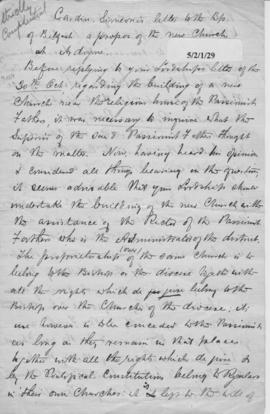 Strictly
Confidential
Cardin. Simeoni's letter to the Bp.
of Belgost a propos of the new Church
at Ardoyne.
5/2/1/29
Before replying to your Lordship's letter of the
30th Oct. regarding the building of a new
Church near the religious house of the Passionist
Fathers, it was necessary to inquire what the
Superior of the said Passionist Fathers thought
on the matter. Now, having heard his opinion
& considered all things bearing on the question,
it seems advisable that your Lordship should
undertake the building of the new Church with
the assistance of the Rector of the Passionist
Fathers who is the Administrator of the district.
The proprietorship of the same Church is to
belong to the Bishop or the diocese together with
all the rights which de jure belong to the
Bishop over the Churches of the diocese; its
use however is to be conceded to the Passionists
as long as they remain in that place
together with all the rights which de jure or
by the Pontifical Constitutions belong to Regulars
in their own Churches. As to the